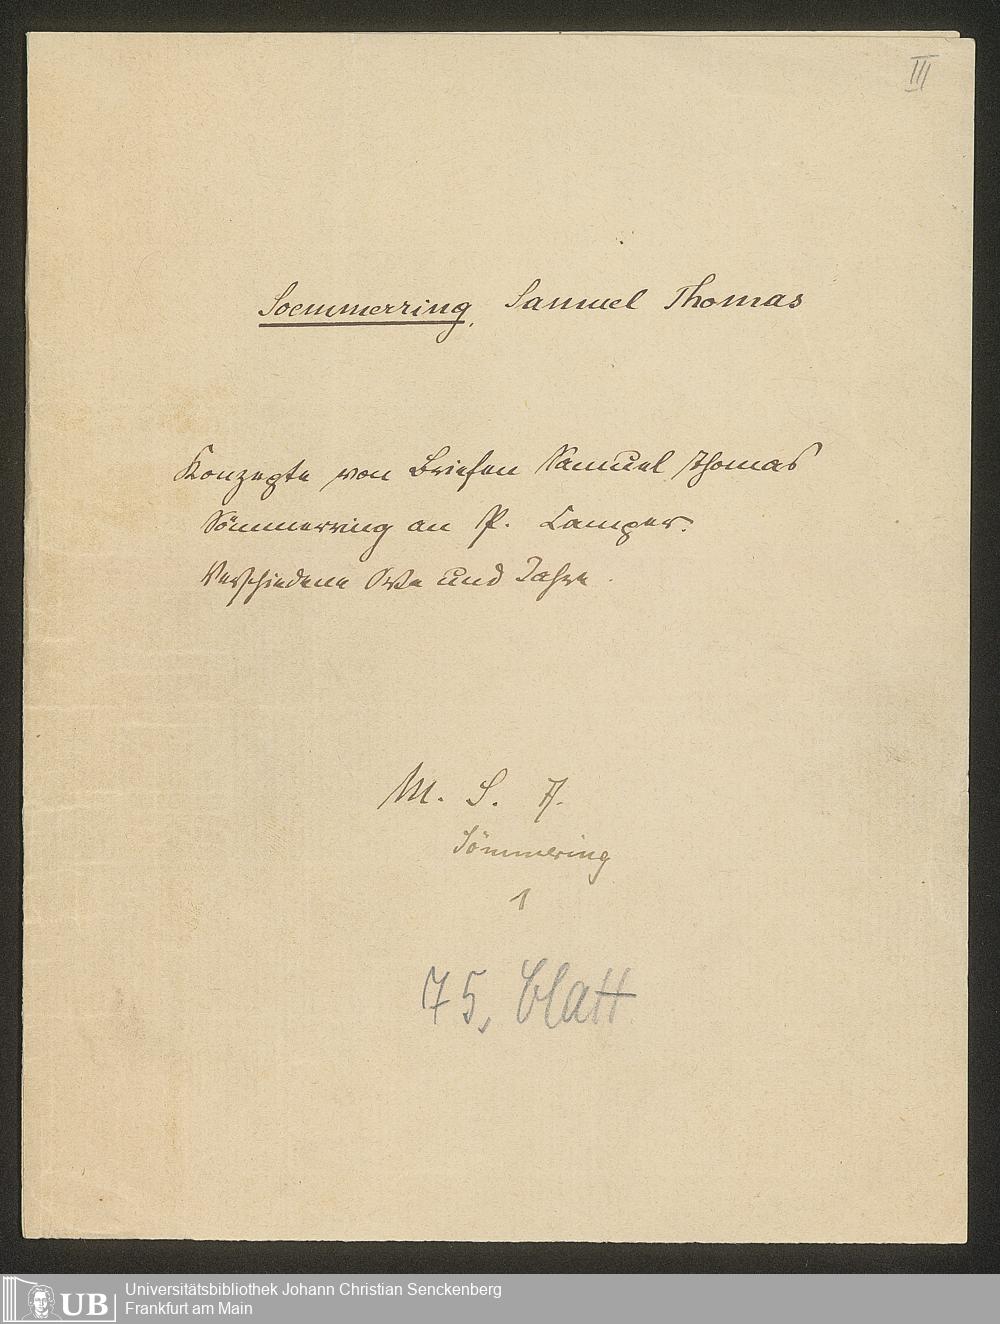 III
Soemmerring, Samuel Thomas
Konzepte von Briefen Samuel Thomas
Sömmerring an P. Camper.
Verschiedene Orte und Jahre.
M. S. 7.
Sömmering
1
75, blatt
UB
Universitätsbibliothek Johann Christian Senckenberg
Frankfurt am Main